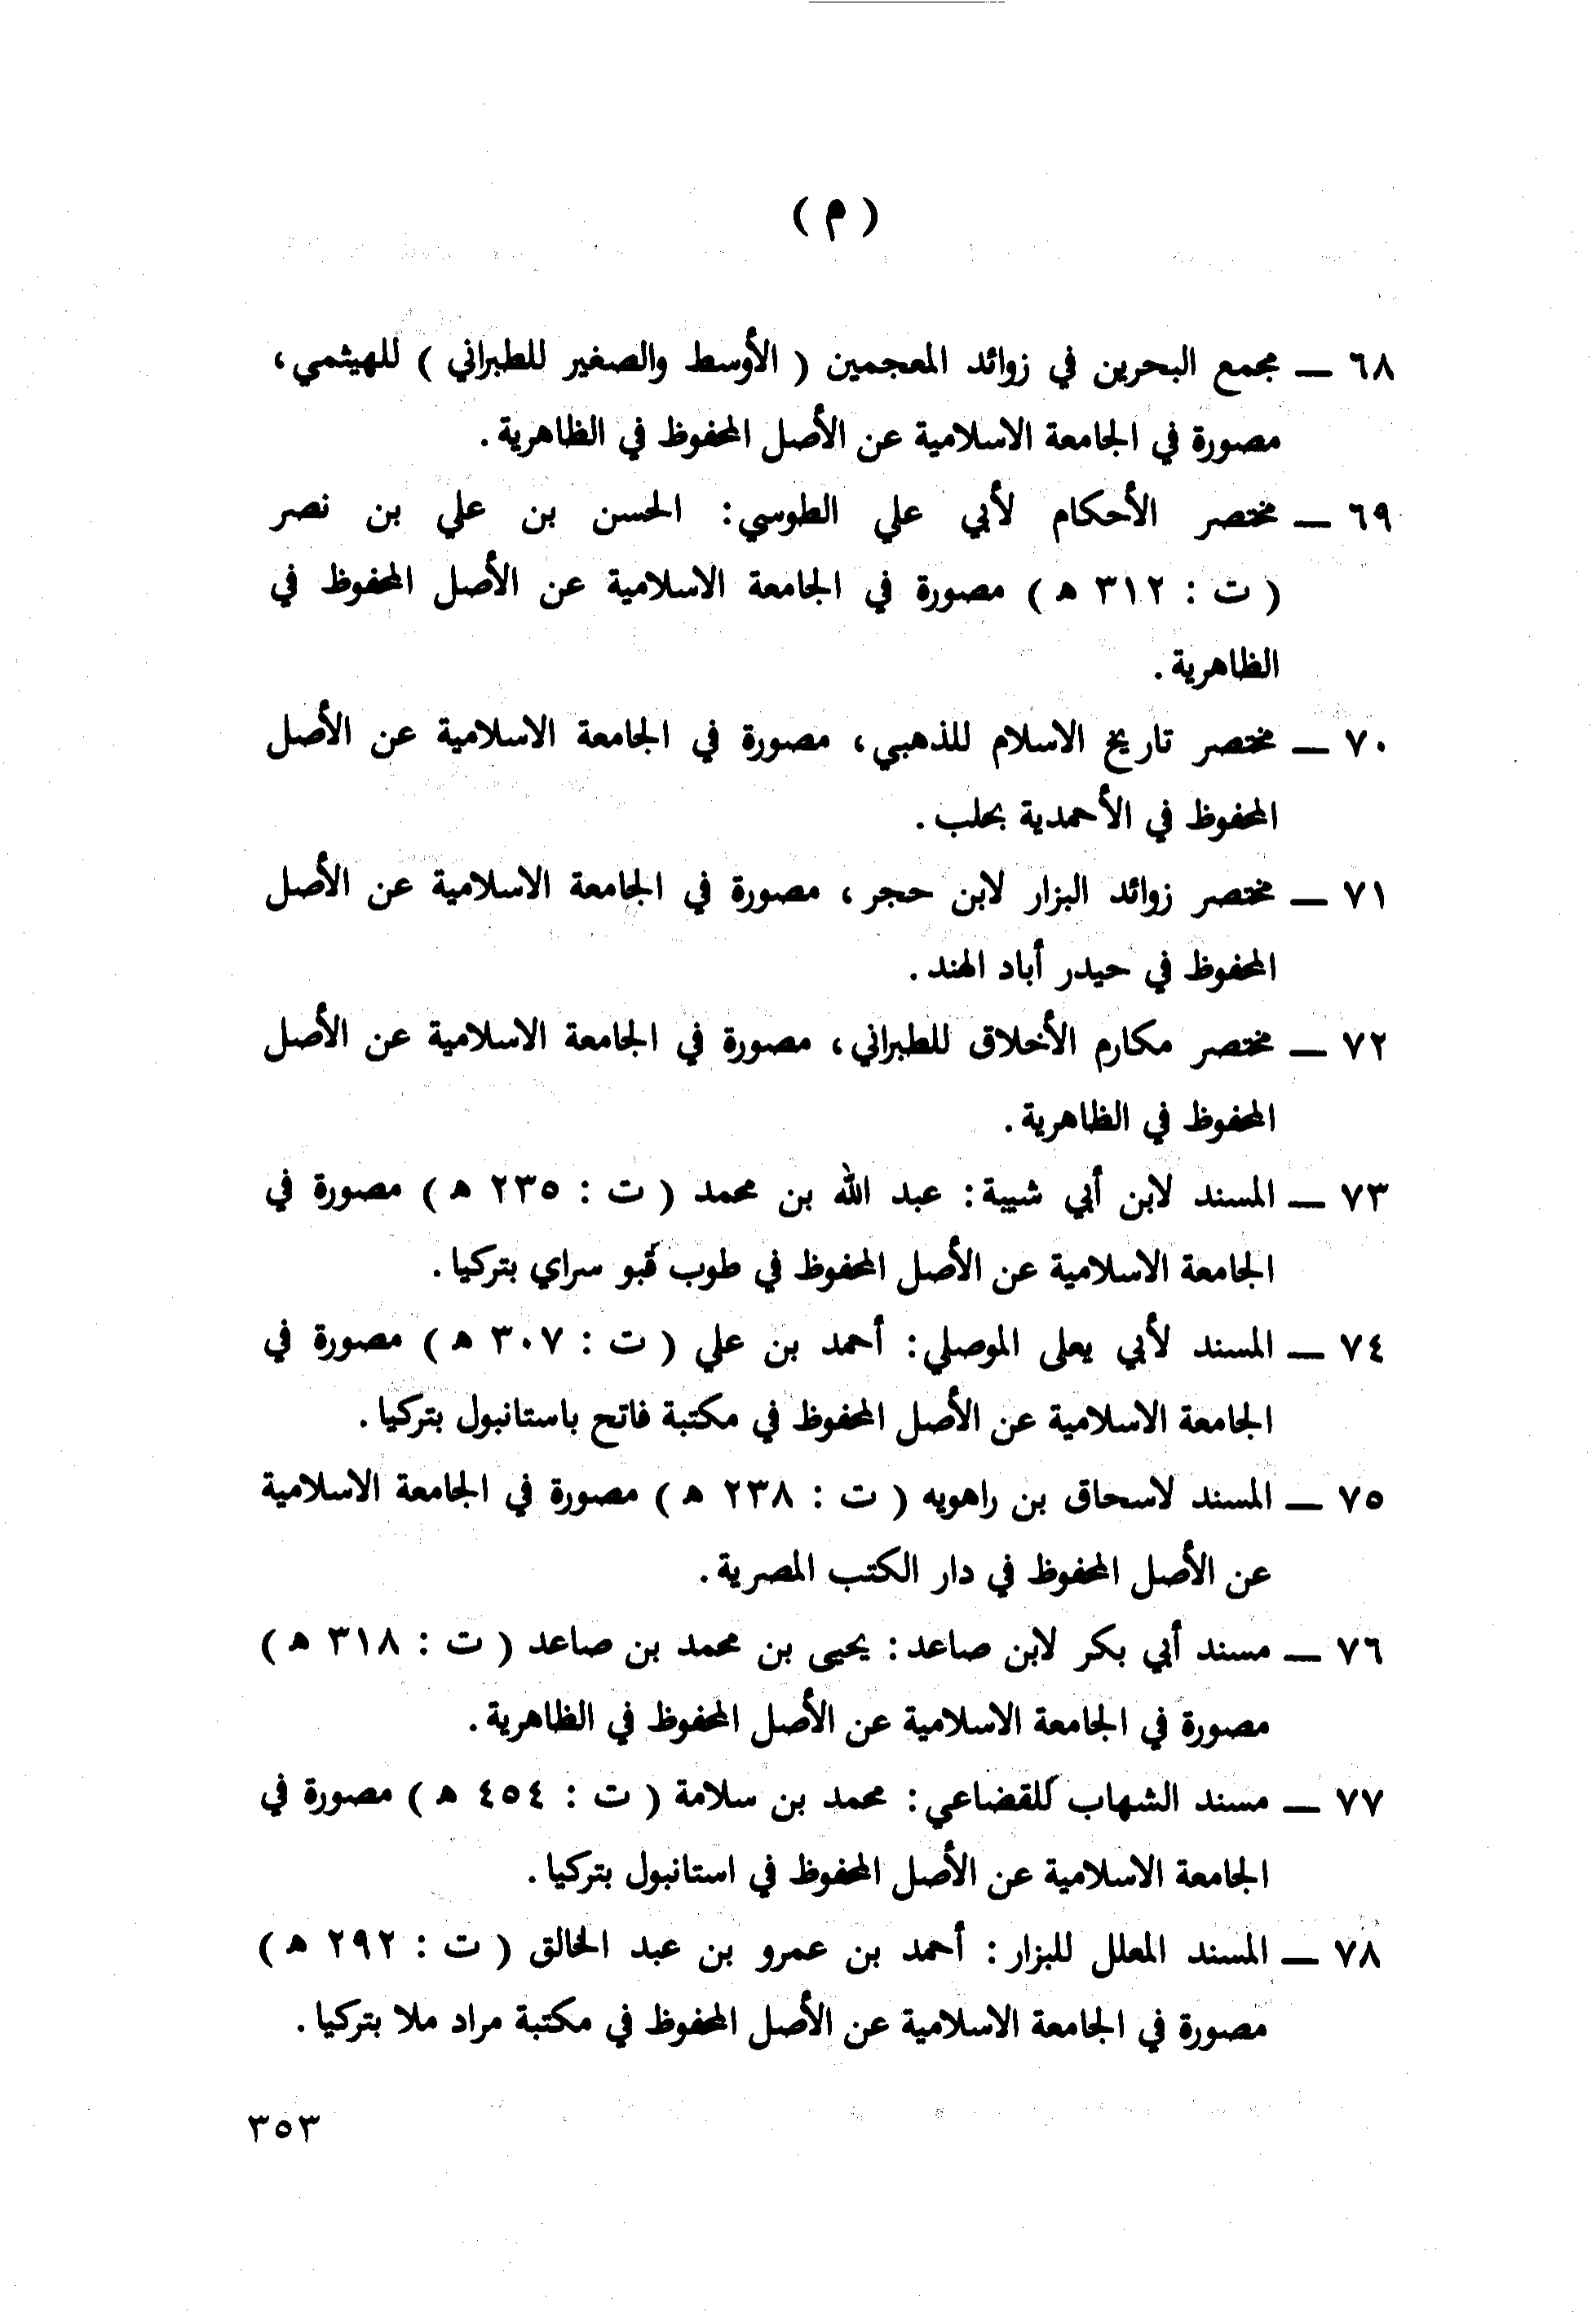 ( م )
٦٨ ــ مجمع البحرين في زوائد المعجمين ( الأوسط والصغير للطبراني ) للهيثمي،
مصورة في الجامعة الاسلامية عن الأصل المحفوظ في الظاهرية.
٦٩ ــ مختصر الأحكام لأبي علي الطوسي: الحسن بن علي بن نصر
( ت : ٣١٢ ه ) مصورة في الجامعة الاسلامية عن الأصل المحفوظ في
الظاهرية.
٧٠ ــ مختصر تاريخ الاسلام للذهبي، مصورة في الجامعة الاسلامية عن الأصل
المحفوظ في الأحمدية بحلب.
٧١ ــ مختصر زوائد البزار لابن حجر، مصورة في الجامعة الاسلامية عن الأصل
المحفوظ في حيدر أباد الهند.
٧٢ ــ مختصر مكارم الأخلاق للطبراني، مصورة في الجامعة الاسلامية عن الأصل
المحفوظ في الظاهرية.
٧٣ ــ المسند لابن أبي شيبة: عبد الله بن محمد ( ت : ٢٣٥ ه ) مصورة في
الجامعة الاسلامية عن الأصل المحفوظ في طوب قبو سراي بتركيا.
٧٤ ــ المسند لأبي يعلى الموصلي: أحمد بن علي ( ت : ٣٠٧ ه ) مصورة في
الجامعة الاسلامية عن الأصل المحفوظ في مكتبة فاتح باستانبول بتركيا.
٧٥ ــ المسند لاسحاق بن راهويه ( ت : ٢٣٨ ه ) مصورة في الجامعة الاسلامية
عن الأصل المحفوظ في دار الكتب المصرية.
٧٦ ــ مسند أبي بكر لابن صاعد: يحيى بن محمد بن صاعد ( ت : ٣١٨ ه )
مصورة في الجامعة الاسلامية عن الأصل المحفوظ في الظاهرية.
٧٧ ــ مسند الشهاب للقضاعي: محمد بن سلامة ( ت : ٤٥٤ ه ) مصورة في
الجامعة الاسلامية عن الأصل المحفوظ في استانبول بتركيا.
٧٨ ــ المسند المعلل للبزار: أحمد بن عمرو بن عبد الخالق ( ت : ٢٩٢ ه )
مصورة في الجامعة الاسلامية عن الأصل المحفوظ في مكتبة مراد ملا بتركيا.
٣٥٣